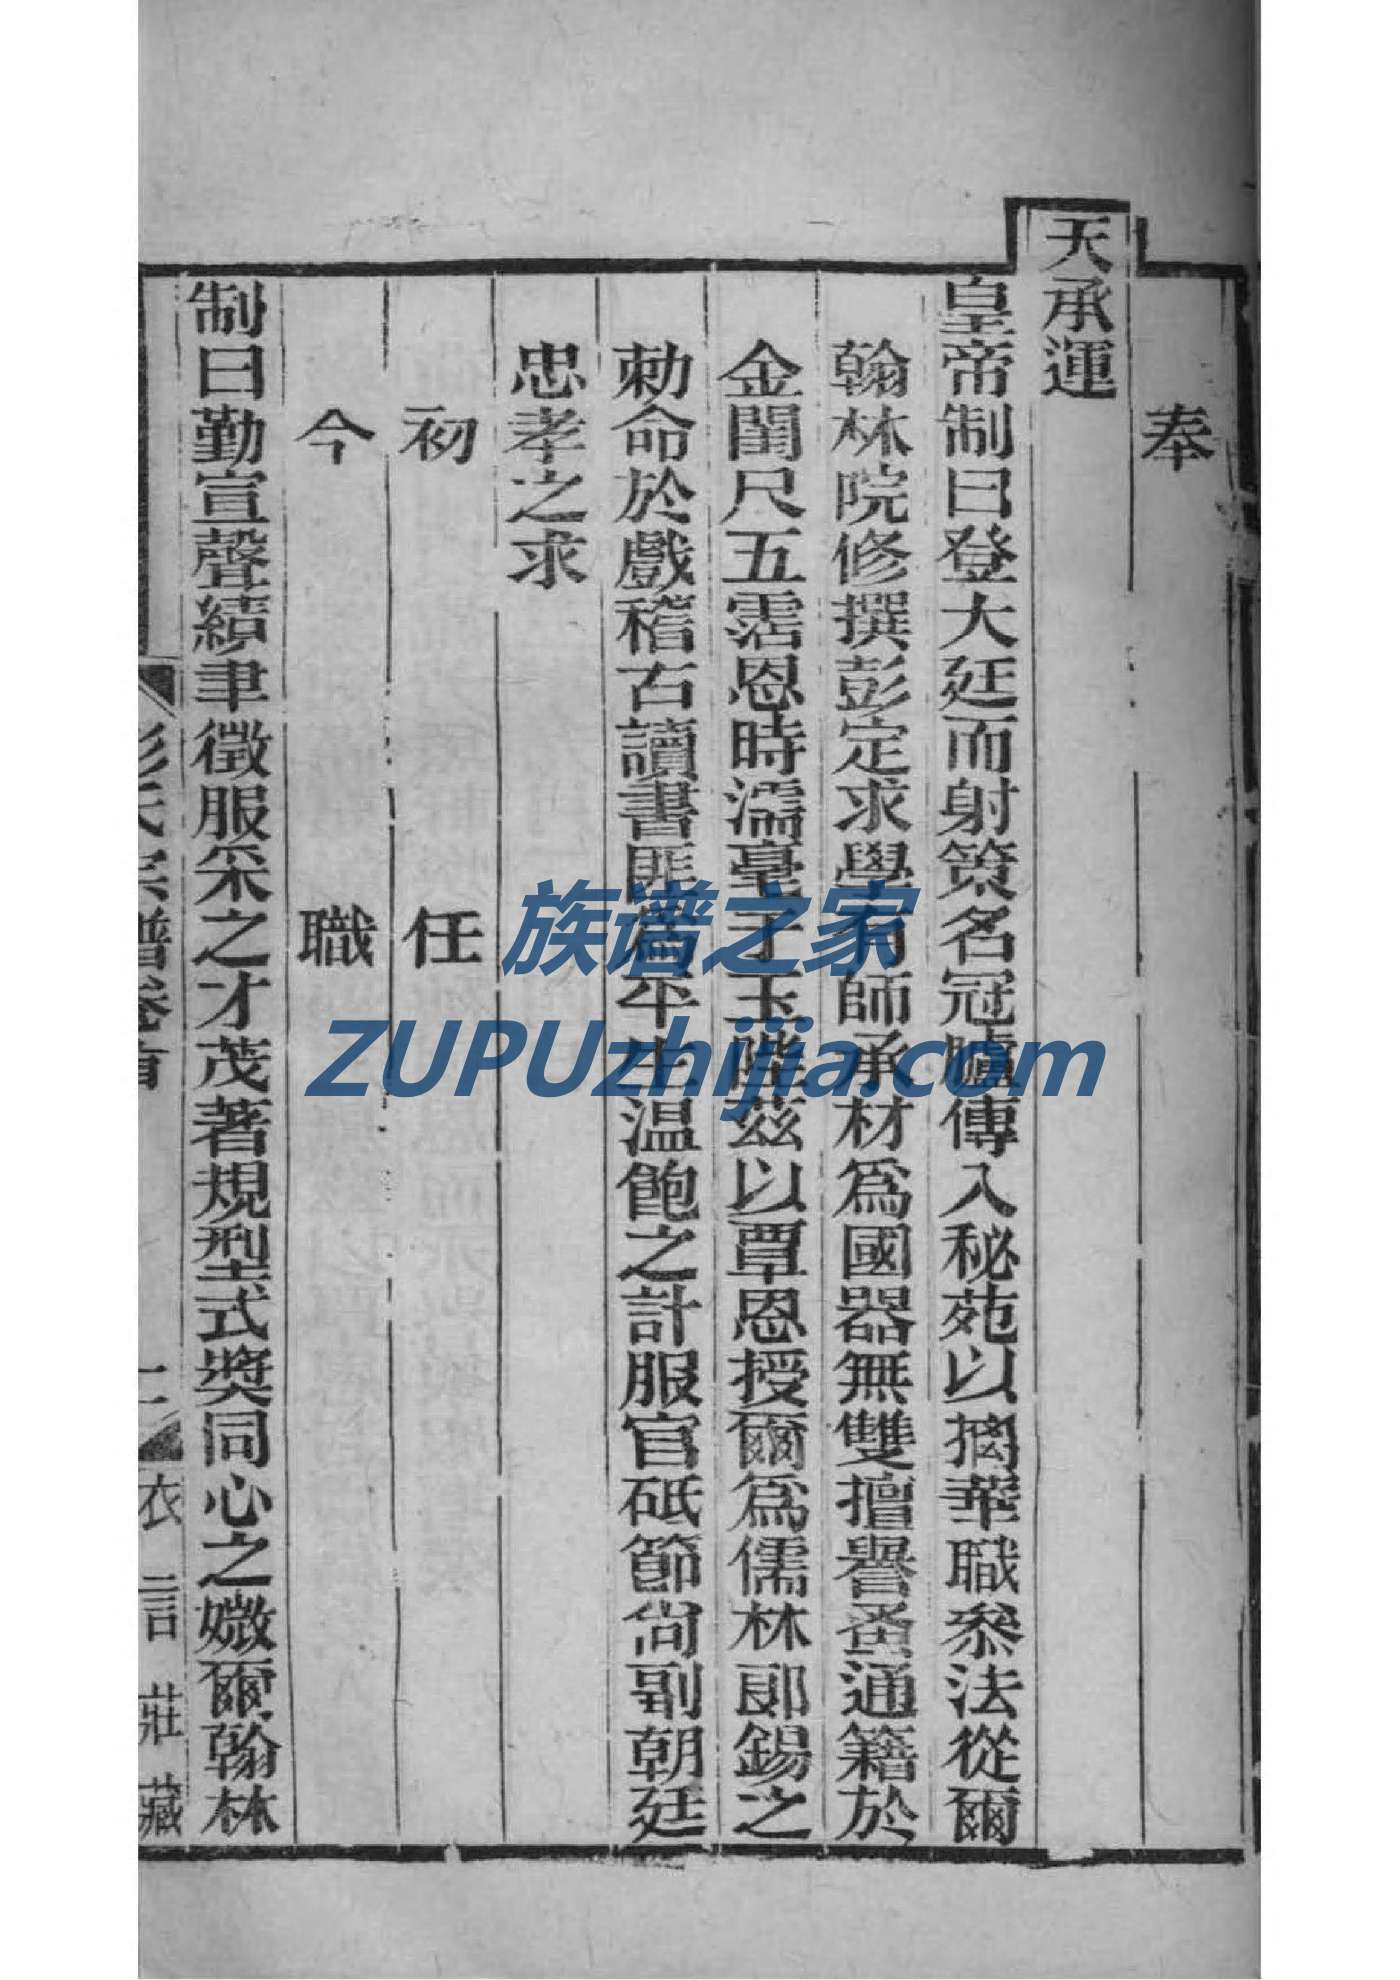 奉
天承運
皇帝制曰登大廷而射策名冠臚傳入秘苑以摛華職叅法從爾
翰林院修撰彭定求學有師承材爲國器無雙擅譽蚤通籍於
金閨尺五霑恩時濡毫于玉陛茲以覃恩授爾爲儒林郎錫之
勅命於戲稽古讀書匪爲平生温飽之計服官砥節尙副朝廷
忠孝之求
初任
今職
制曰勤宣聲績聿徵服采之才茂著規型式奬同心之媺爾翰林
彭氏宗譜卷首
二
衣言莊藏
族谱之家
ZUPUzhijia.com